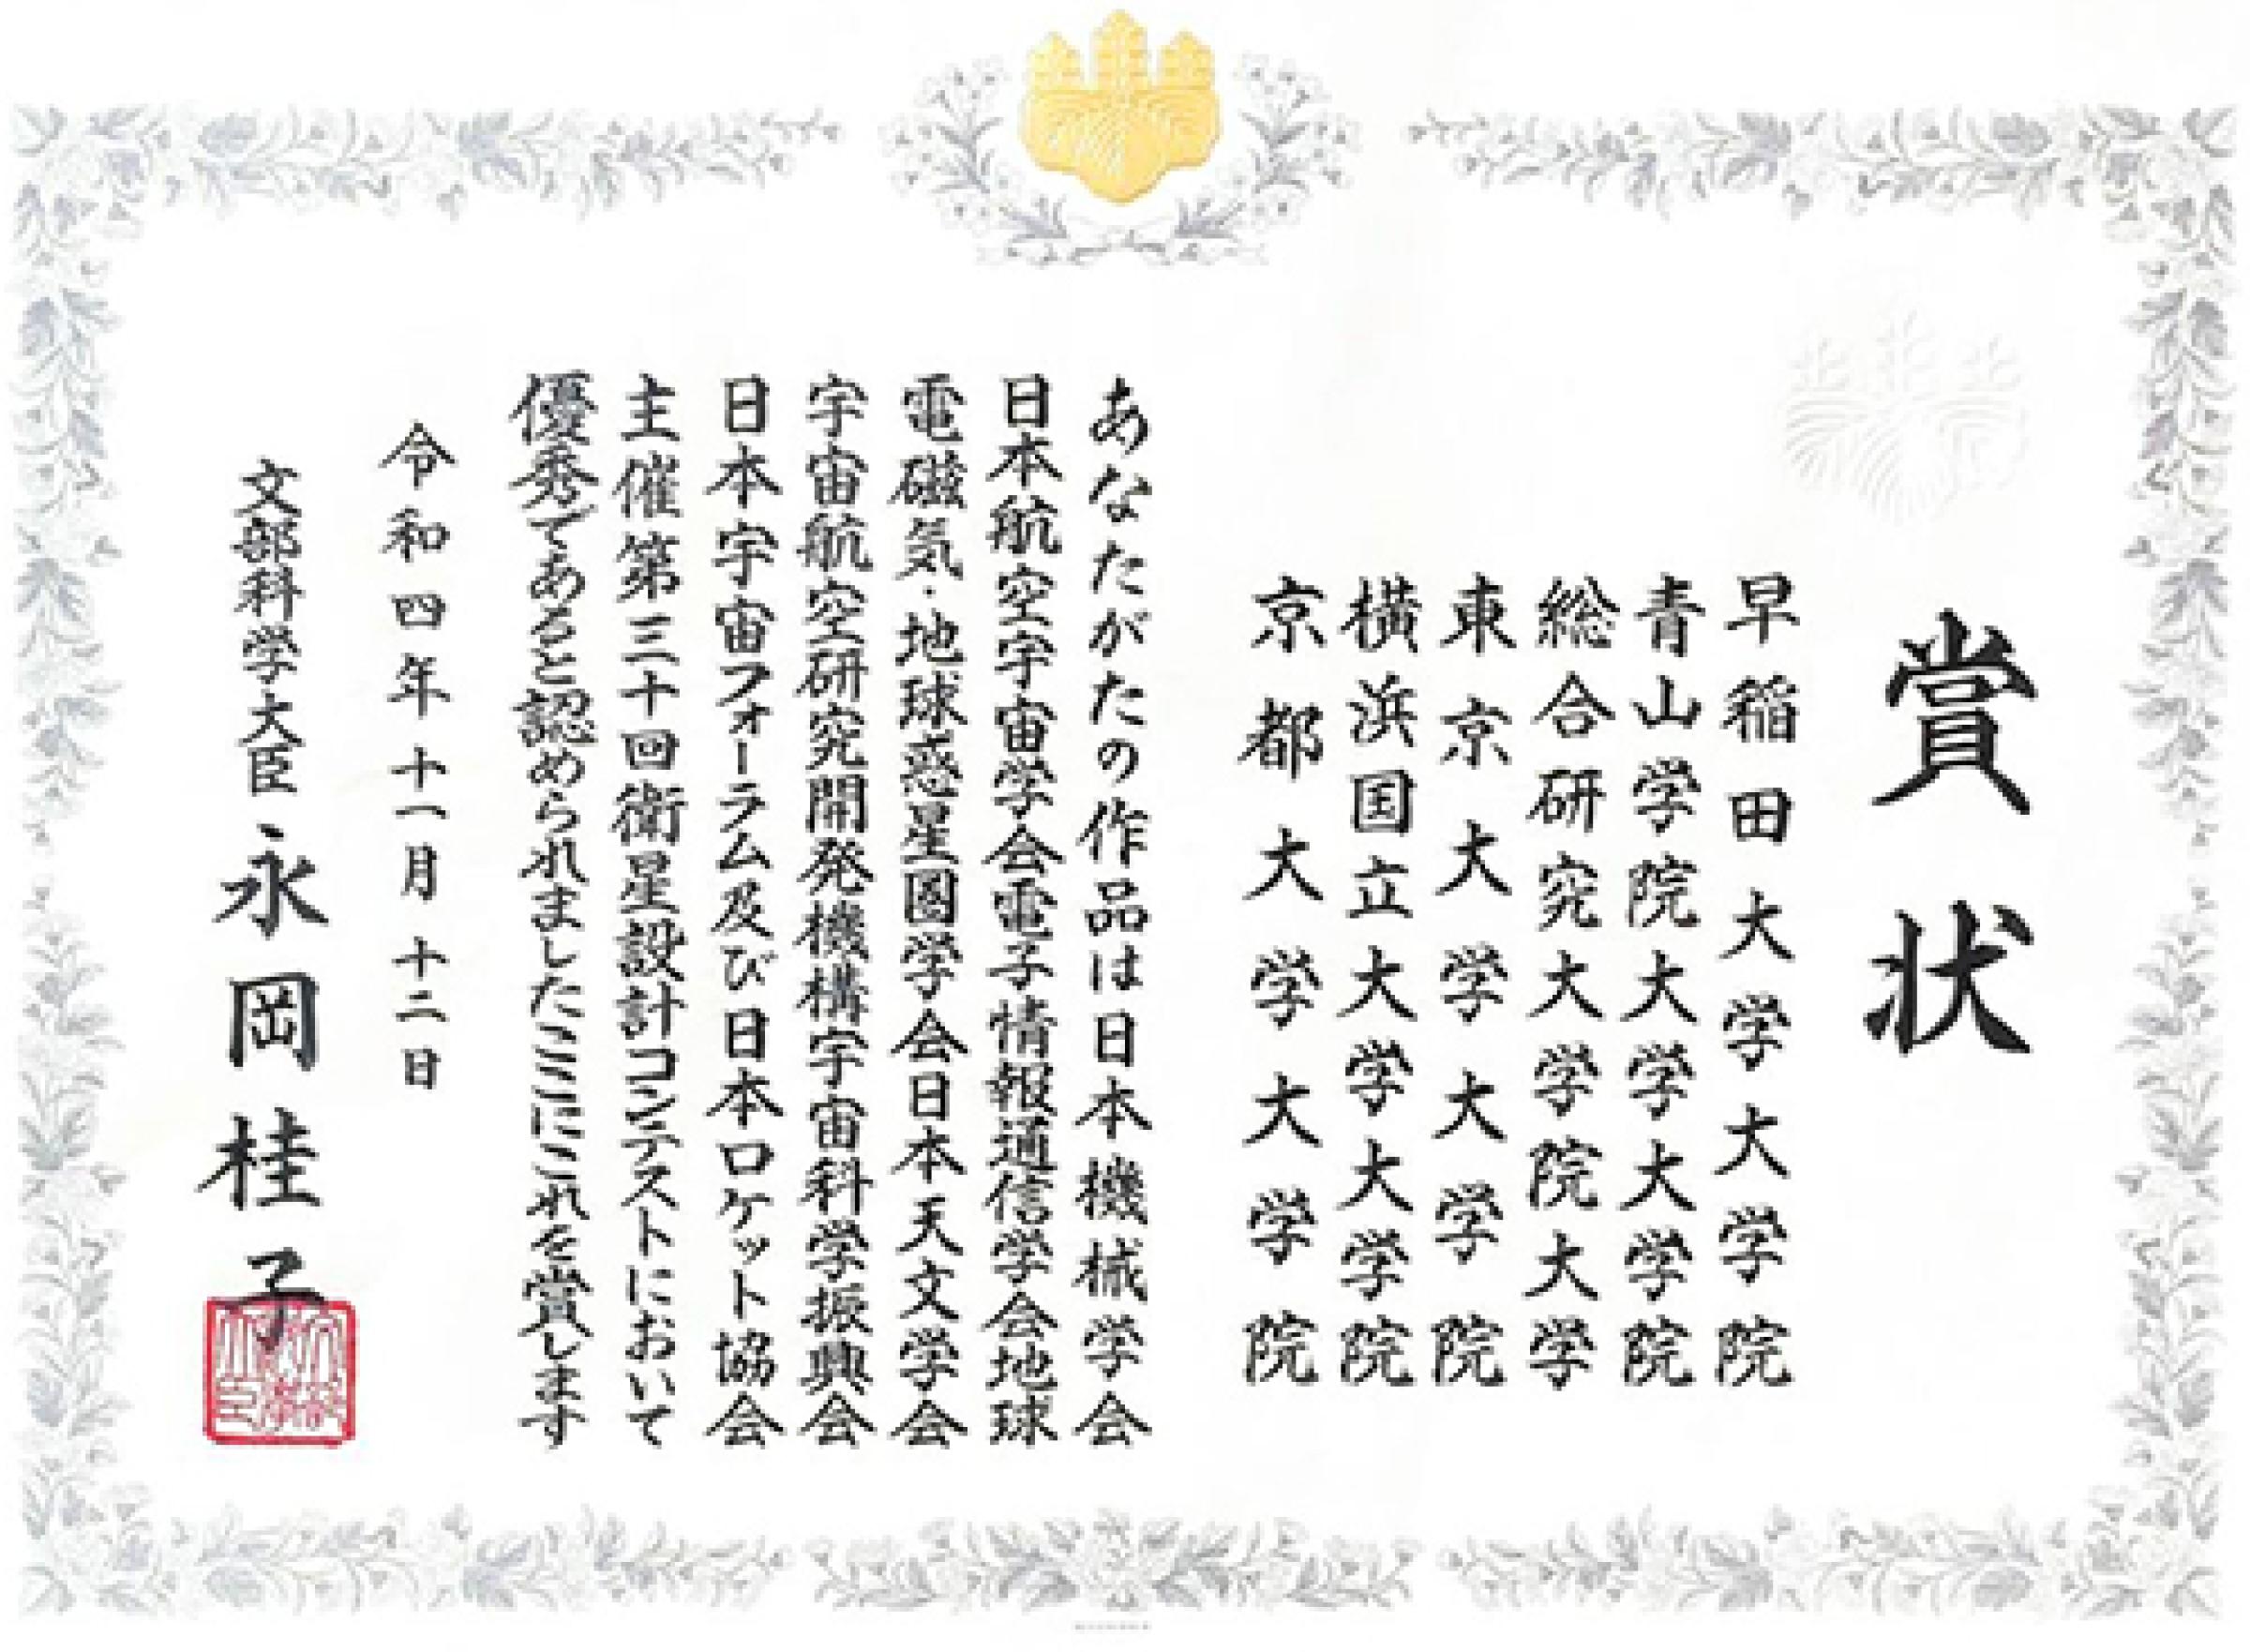 賞状
早稲田大学大学院
青山学院大学大学院
総合研究大学院大学
東京大学大学院
横浜国立大学大学院
京都大学大学院
あなたがたの作品は日本機械学会
日本航空宇宙学会電子情報通信学会地球
電磁気・地球惑星圏学会日本天文学会
宇宙航空研究開発機構宇宙科学振興会
日本宇宙フォーラム及び日本ロケット協会
主催第三十回衛星設計コンテストにおいて
優秀であると認められましたここにこれを賞します
令和四年十一月十二日
文部科学大臣 永岡桂子